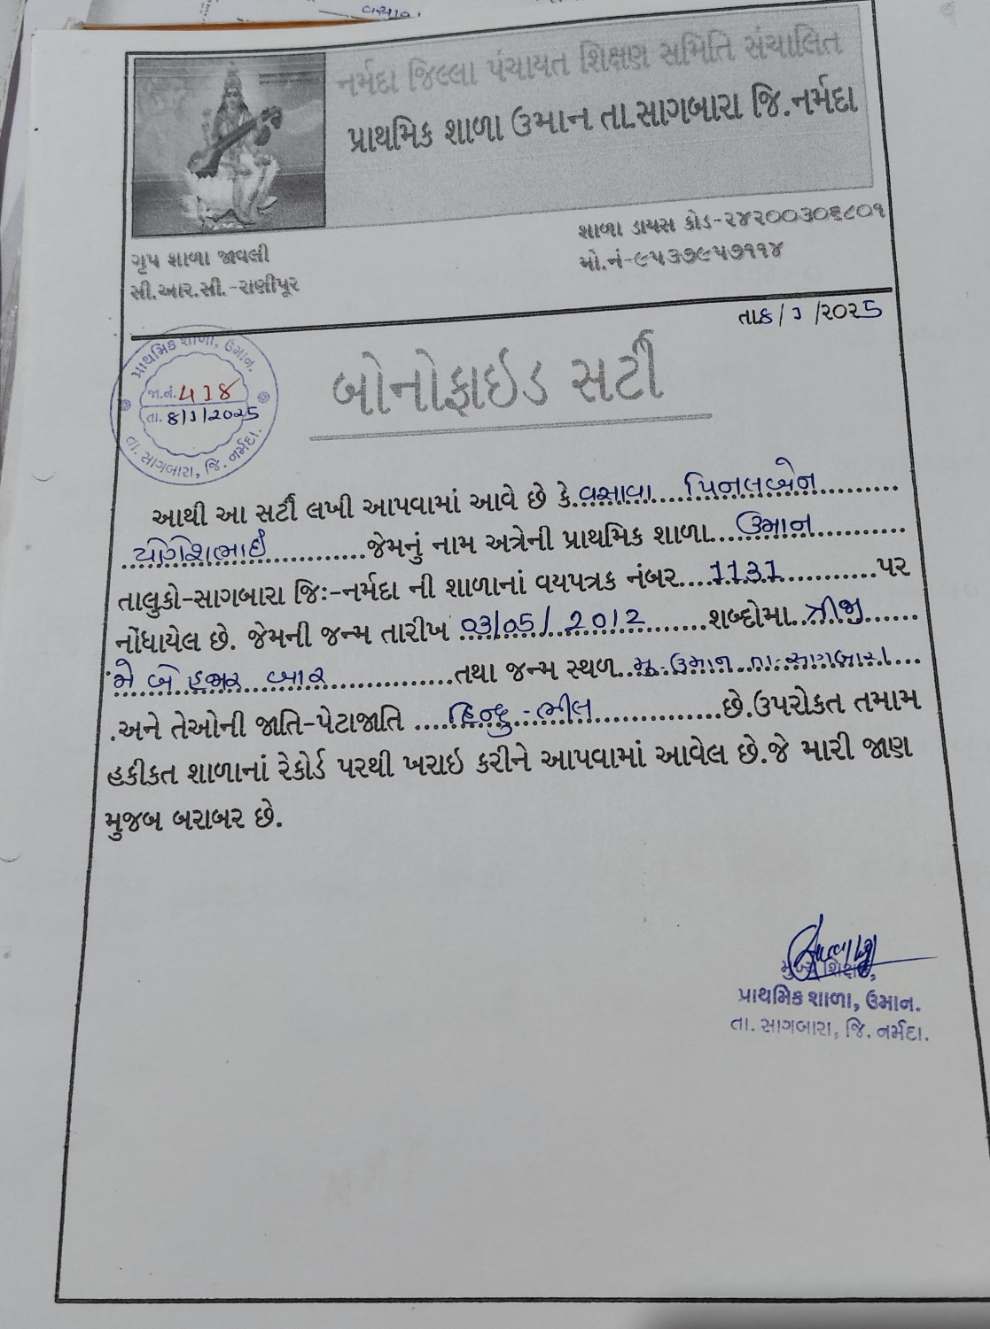 નર્મદા જિલ્લા પંચાયત શિક્ષણ સમિતિ સંચાલિત
પ્રાથમિક શાળા ઉમાન તા.સાગબારા જિ.નર્મદા
ગૃપ શાળા જાવલી
સી.આર.સી.-રાણીપૂર
શાળા ડાયસ કોડ-૨૪૨૦૦૩૦૬૮૦૧
મો.નં-૯૫૩૭૯૫૭૧૧૪
તા8/1/૨૦૨5
પ્રાથમિક શાળા, ઉમાન.
જા.નં.
તા. 8/1/2025
તા. સાગબારા, જિ. નર્મદા.
બોનોફાઇડ સર્ટી
આથી આ સર્ટી લખી આપવામાં આવે છે કે વસાવા પિનલબેન
યોગેશભાઈ જેમનું નામ અત્રેની પ્રાથમિક શાળા ઉમાન
તાલુકો-સાગબારા જિઃ-નર્મદા ની શાળાનાં વયપત્રક નંબર 1131 પર
નોંધાયેલ છે. જેમની જન્મ તારીખ 03/05/2012 શબ્દોમા ત્રીજી
મે બે હજાર બાર તથા જન્મ સ્થળ મુ.ઉમાન તા.સાગબારા
.અને તેઓની જાતિ-પેટાજાતિ હિન્દુ-ભીલ છે.ઉપરોકત તમામ
હકીકત શાળાનાં રેકોર્ડ પરથી ખરાઇ કરીને આપવામાં આવેલ છે.જે મારી જાણ
મુજબ બરાબર છે.
મુખ્ય શિક્ષક,
પ્રાથમિક શાળા, ઉમાન.
તા. સાગબારા, જિ. નર્મદા.